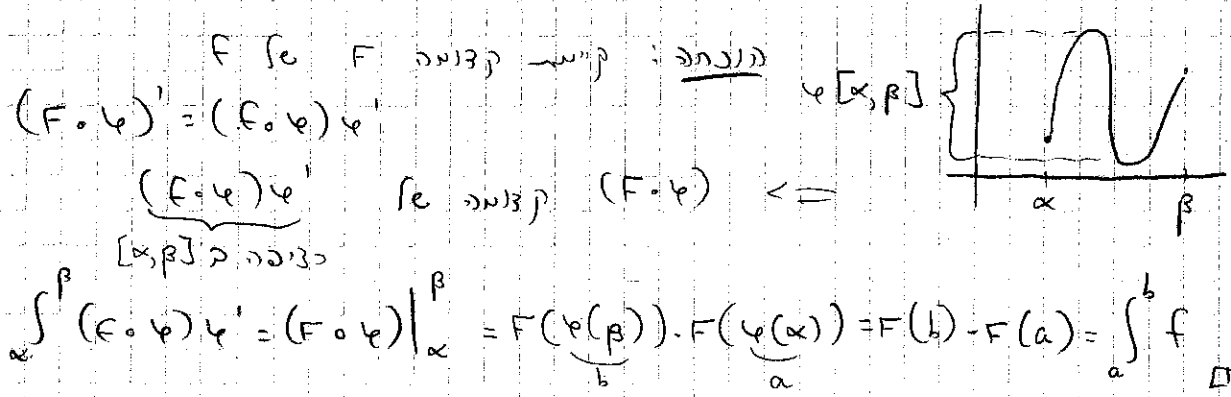 הוכחה: קיימת קדומה F של f
(F∘φ)' = (f∘φ)φ'
<= (F∘φ) קדומה של (f∘φ)φ'
רציפה ב [α,β]
∫_α^β (f∘φ)φ' = (F∘φ)|_α^β = F(φ(β)) - F(φ(α)) = F(b) - F(a) = ∫_a^b f □
b a
φ[α,β]
α β